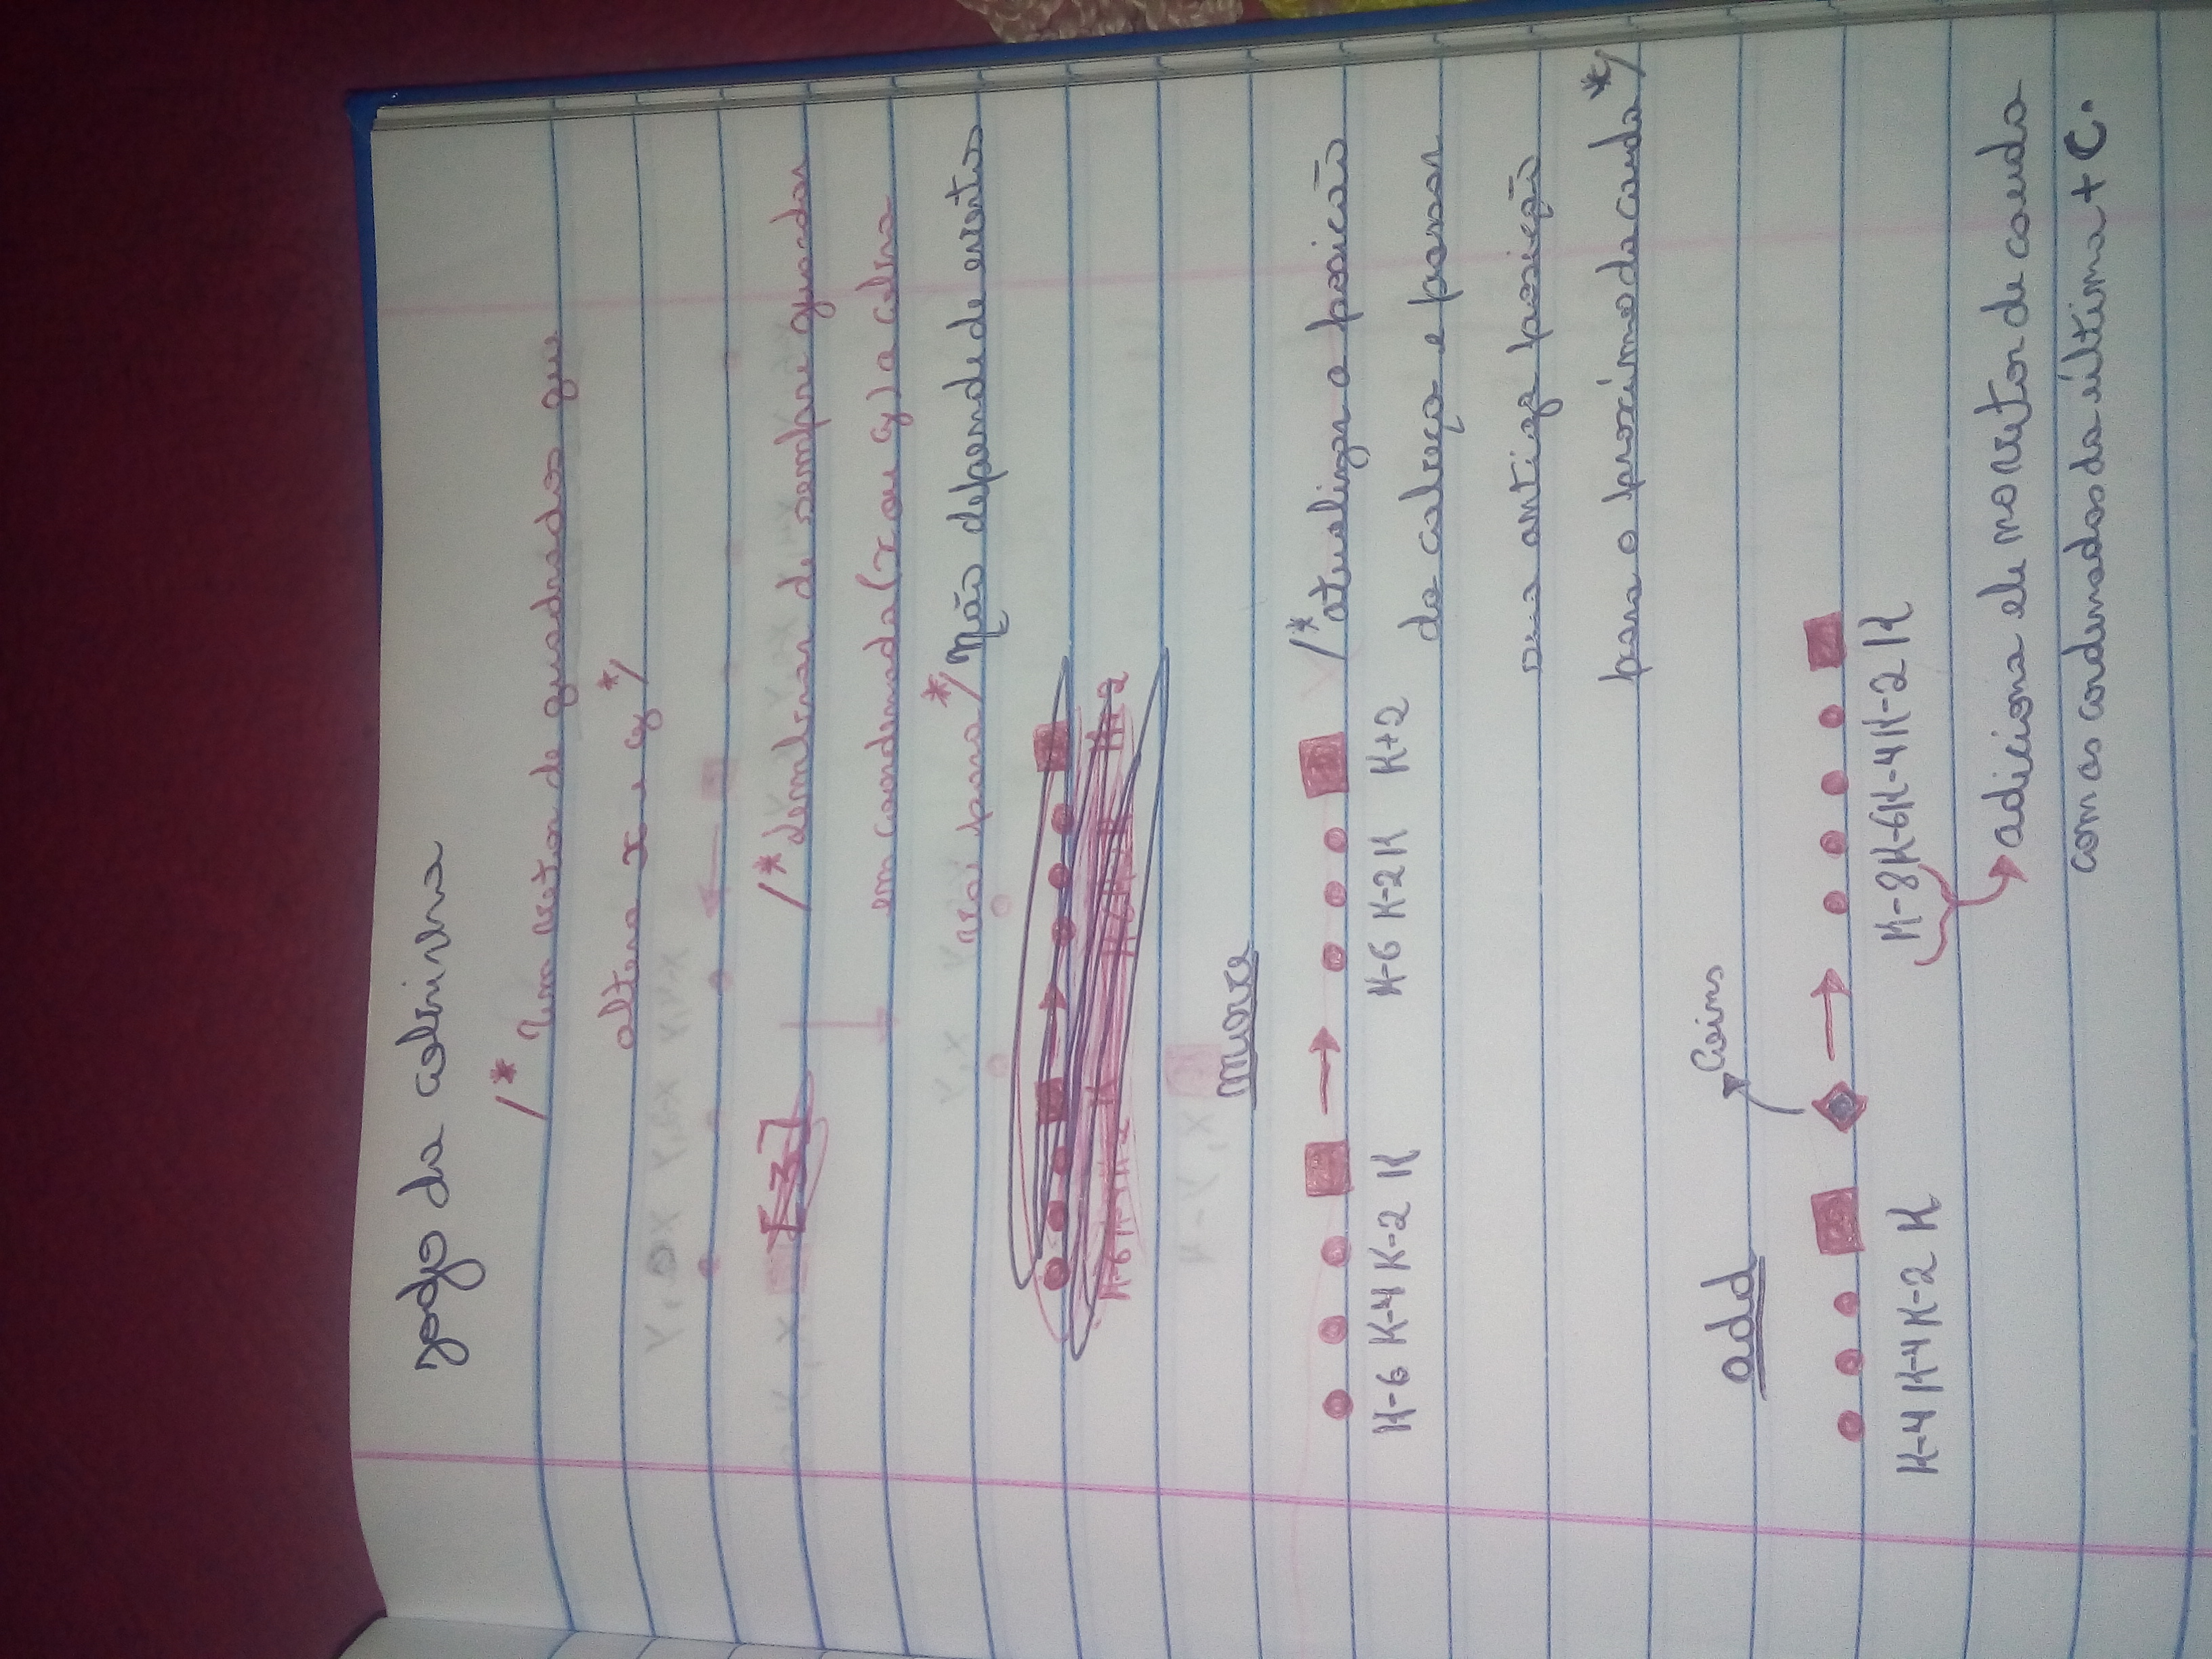 jogo da cobrinha
/* Um vetor de quadrados que
altera x e y */
[3]
/* Lembrar de sempre guardar
em coordenada (x ou y) a cobra
vai para */ Não depende de eventos
K-6 K-4 K-2 K K-6 K-2 K K+2
move
K-6 K-4 K-2 K K-6 K-2 K K+2
/* atualizar a posicão
da cabeça e passar
sua antiga posição
para o proxímo da cauda */
add
Coins
K-4 K-4 K-2 K K-8 K-6 K-4 K-2 K
adiciona ele no vetor de cauda
com as cordenadas da última + C.